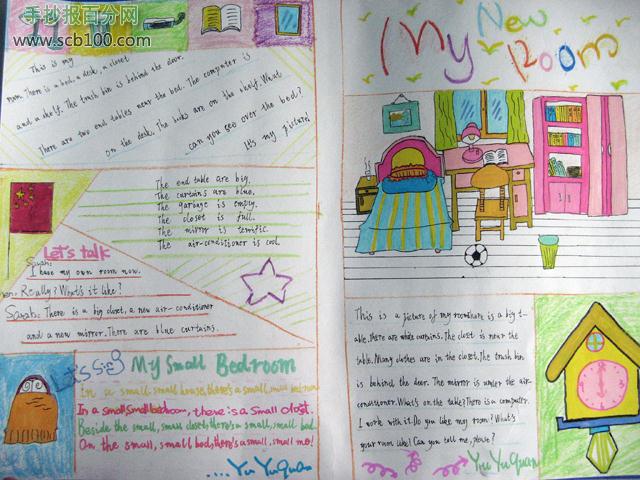 手抄报百分网
www.scb100.com
This is my
room. There is a bed, a desk, a closet
and a shelf. The trash bin is behind the door. The computer is
There are two end tables near the bed. The books are on the shelf. What
on the desk. can you see over the bed?
It's my picture
The end table are big.
The curtains are blue.
The garbage is empty.
The closet is full.
The mirror is terrific.
The air-conditioner is cool.
Let's talk
Sarah:
I have my own room now.
Really? What's it like?
Sarah: There is a big closet, a new air-conditioner
and a new mirror. There are blue curtains.
Let's sing
My Small Bedroom
In a small, small house, there's a small, small bedroom
In a small, small bedroom, there is a small closet.
Beside the small, small closet, there's a small, small bed
On the small, small bed, there's a small, small me!
....Yu YuQuan
My New Room
This is a picture of my room. There is a big t-
able, there are white curtains. The closet is near the
table. Many clothes are in the closet. The trash bin
is behind the door. The mirror is under the air-
conditioner. What's on the table? There is a computer.
I work with it. Do you like my room? What's
your room like? Can you tell me, please?
Yu YuQuan